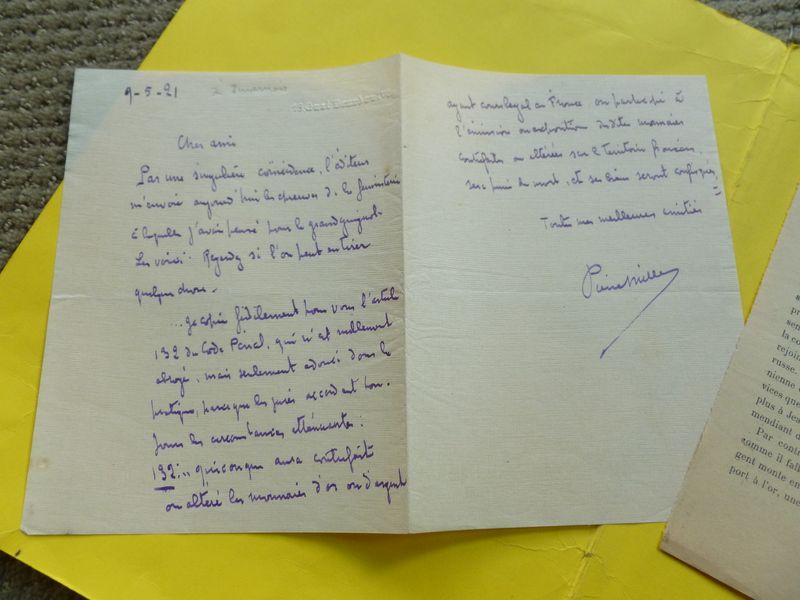 9-5-21
Cher ami
Par une singulière coïncidence, l'éditeur
m'envoie aujourd'hui les épreuves de la
à laquelle j'avais pensé pour le grand guignol.
Les voici. Regardez si l'on peut en tirer
quelque chose.
... Je copie fidèlement pour vous l'article
132 du Code Pénal, qui n'est nullement
abrogé, mais seulement adouci dans la
pratique, parce que les jurés accordent tou-
jours les circonstances atténuantes :
132 : .. quiconque aura contrefait
ou altéré les monnaies d'or ou d'argent
ayant cours légal en France ou participé à
l'émission ou exposition desdites monnaies
contrefaites ou altérées sur le territoire français,
sera puni de mort, et ses biens seront confisqués
Toutes mes meilleures amitiés
Pierre Mille
la co
rejoin
russe.
nienne
vices que
plus à Jes
mendiant d
Par contr
comme il fall
gent monte en
port à l'or, une